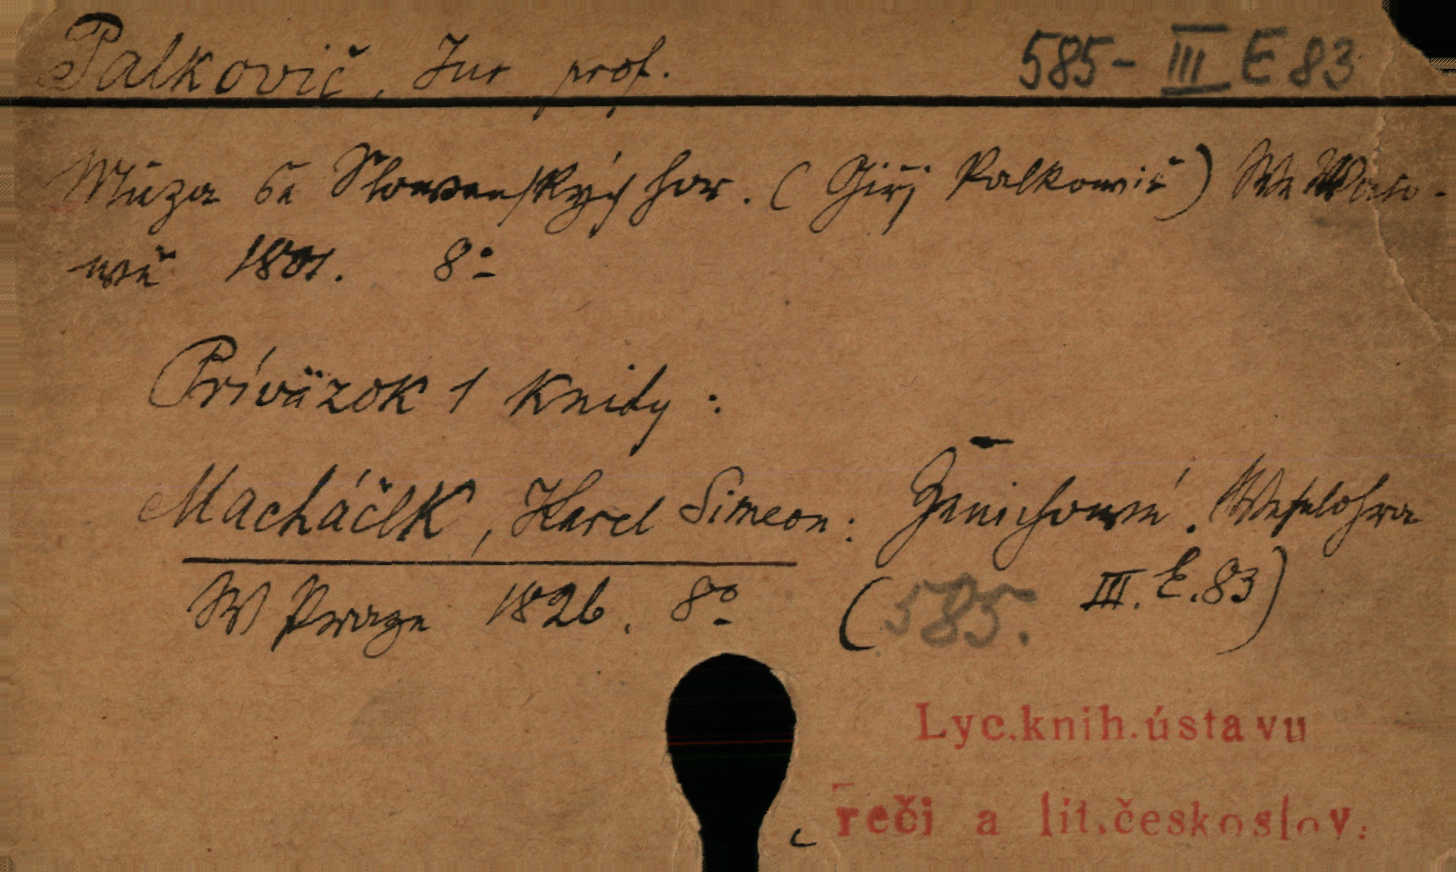 Palkovič, Jur prof. 585- III E 83
Múza ze Slowenských hor. (Giřj Palkowič) We Waco-
wě 1801. 8°
Príväzok 1 knihy :
Macháček, Karel Simeon: Ženichowé. Weselohra
W Praze 1826. 8° (585. III. E. 83)
Lyc.knih.ústavu
reči a lit.českoslov.